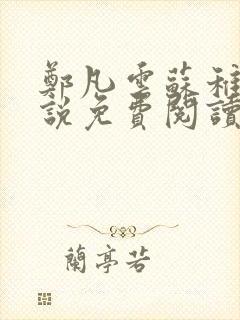 鄭凡雲蘇稚
說免費閱讀
蘭亭若